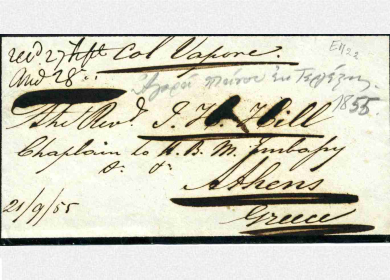 recd 27 Sept Col Vapore.
And 28
E1122
1855.
The Revd. J. H. Hill
Chaplain to H. B. M. Embassy
&. &.
Athens
Greece
21/9/55